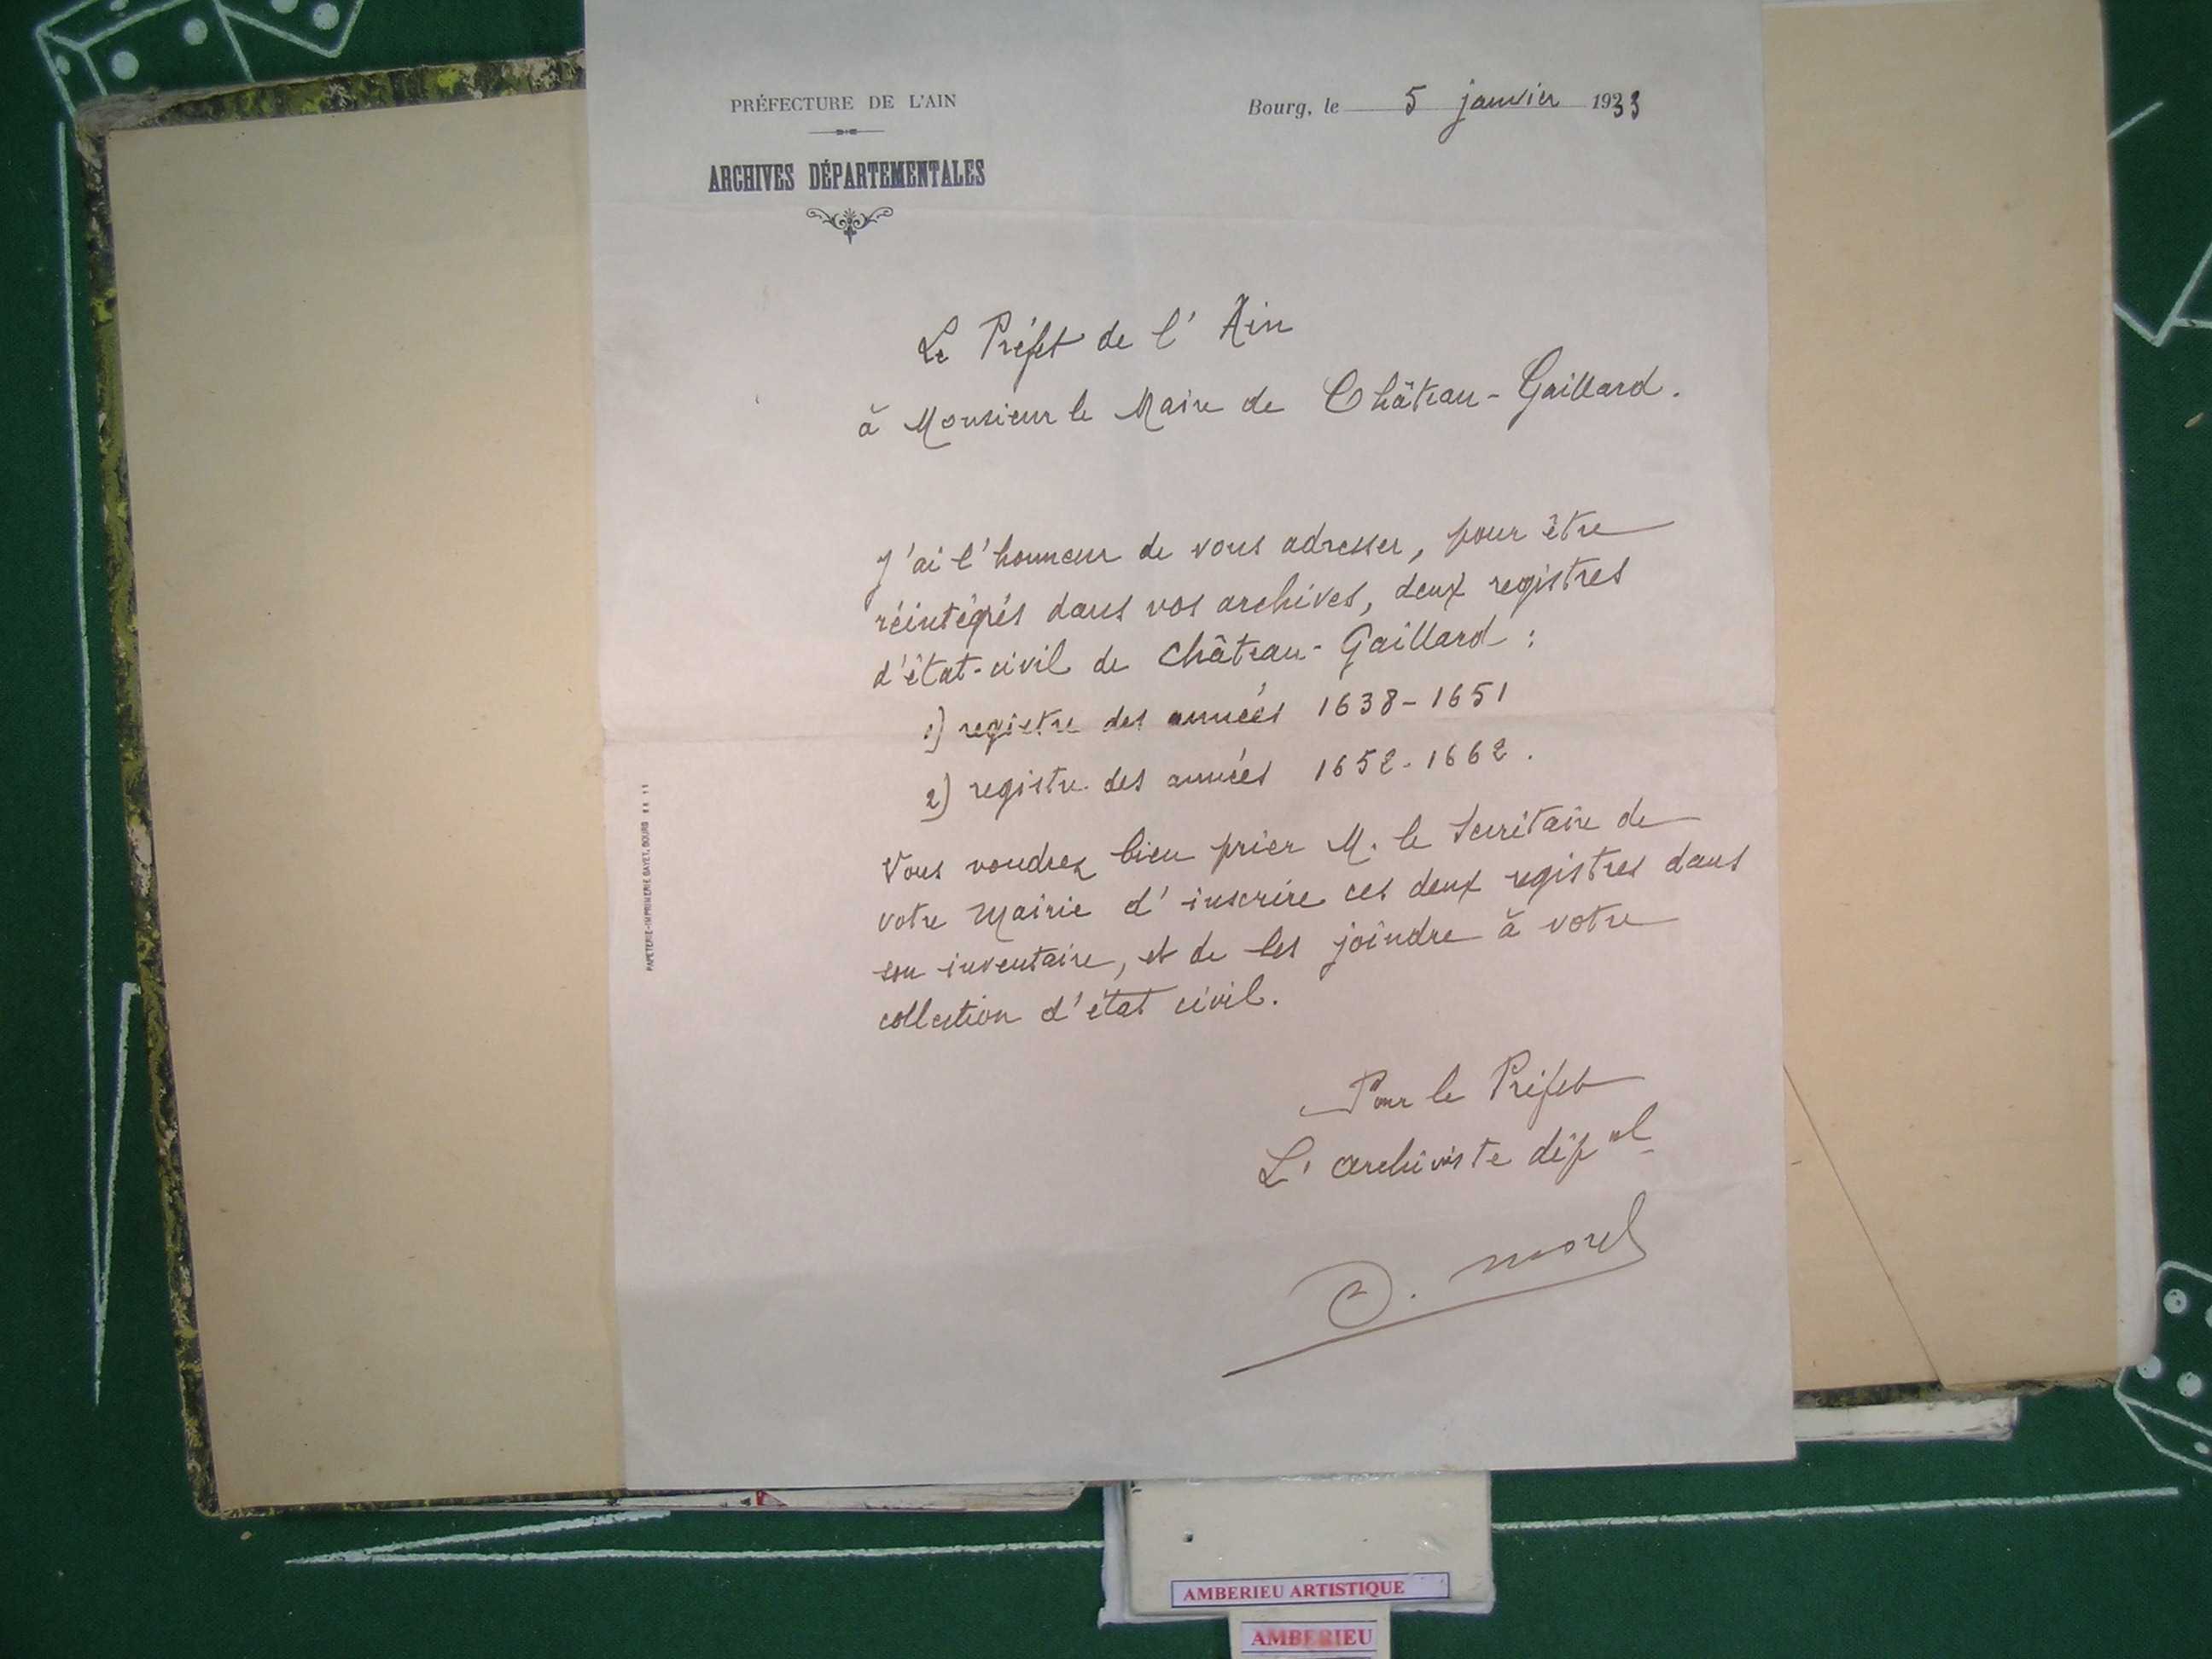 PRÉFECTURE DE L'AIN
ARCHIVES DÉPARTEMENTALES
Bourg, le 5 janvier 1933
Le Préfet de l'Ain
à Monsieur le Maire de Château-Gaillard.
J'ai l'honneur de vous adresser, pour être
réintégrés dans vos archives, deux registres
d'état-civil de Château-Gaillard :
1) registre des années 1638-1651
2) registre des années 1652-1662.
Vous voudrez bien prier M. le Secrétaire de
votre Mairie d'inscrire ces deux registres dans
son inventaire, et de les joindre à votre
collection d'état civil.
Pour le Préfet
L'archiviste dépal
O. Morel
PAPETERIE-IMPRIMERIE GAYET, BOURG
AMBERIEU ARTISTIQUE
AMBERIEU